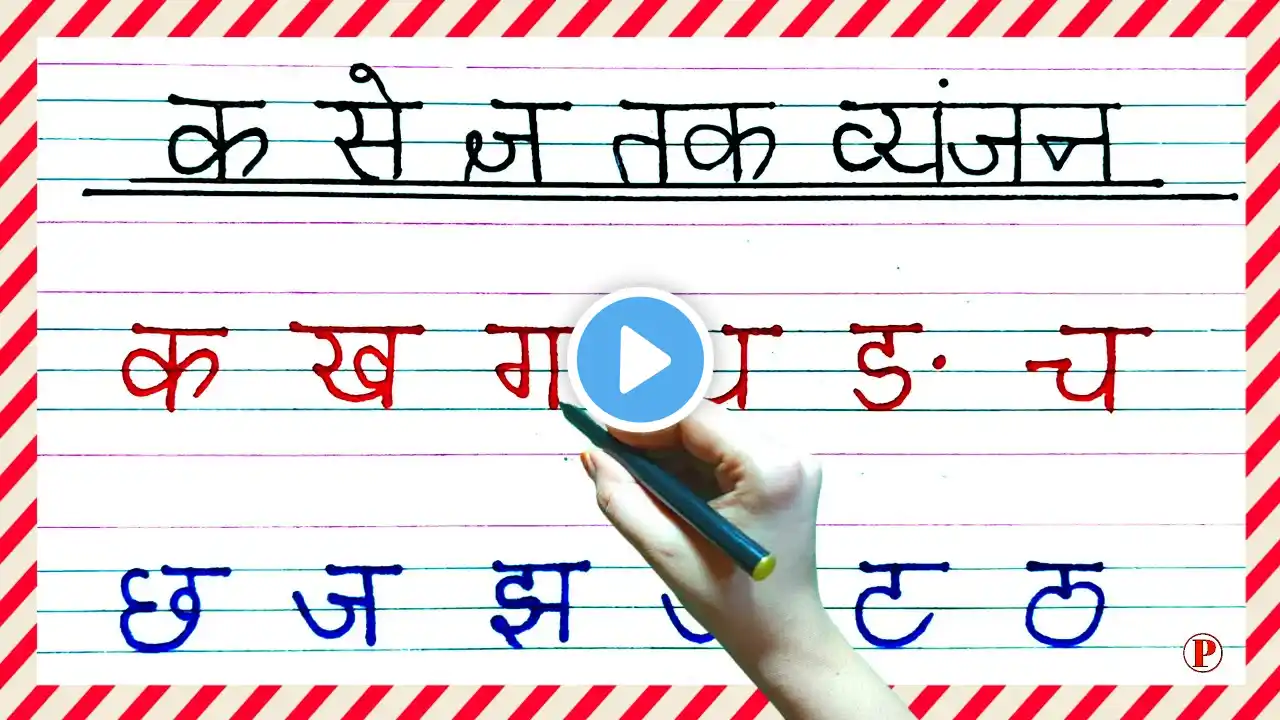 क से ज्ञ तक व्यंजन
क ख ग ङ च
छ ज झ ट ठ
P